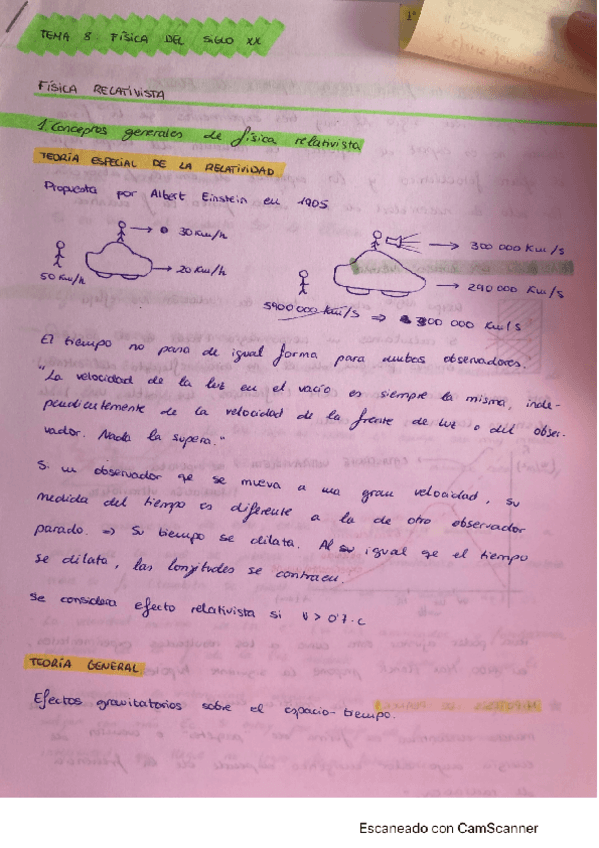 TEMA 8 FÍSICA DEL SIGLO XX
1º
FÍSICA RELATIVISTA
1. Conceptos generales de física relativista
TEORÍA ESPECIAL DE LA RELATIVIDAD
Propuesta por Albert Einstein en 1905
30 Km/h
20 Km/h
50 Km/h
300 000 Km/s
240 000 Km/s
5400 000 Km/s ⇒ 300 000 Km/s
El tiempo no pasa de igual forma para ambos observadores.
"La velocidad de la luz en el vacío es siempre la misma, inde-
pendientemente de la velocidad de la fuente de luz o del obser-
vador. Nada la supera."
Si un observador qe se mueva a una gran velocidad, su
medida del tiempo es diferente a la de otro observador
parado. ⇒ Su tiempo se dilata. Al igual qe el tiempo
se dilata, las longitudes se contraen.
Se considera efecto relativista si v > 0'7·c
TEORÍA GENERAL
Efectos gravitatorios sobre el espacio-tiempo.
Escaneado con CamScanner